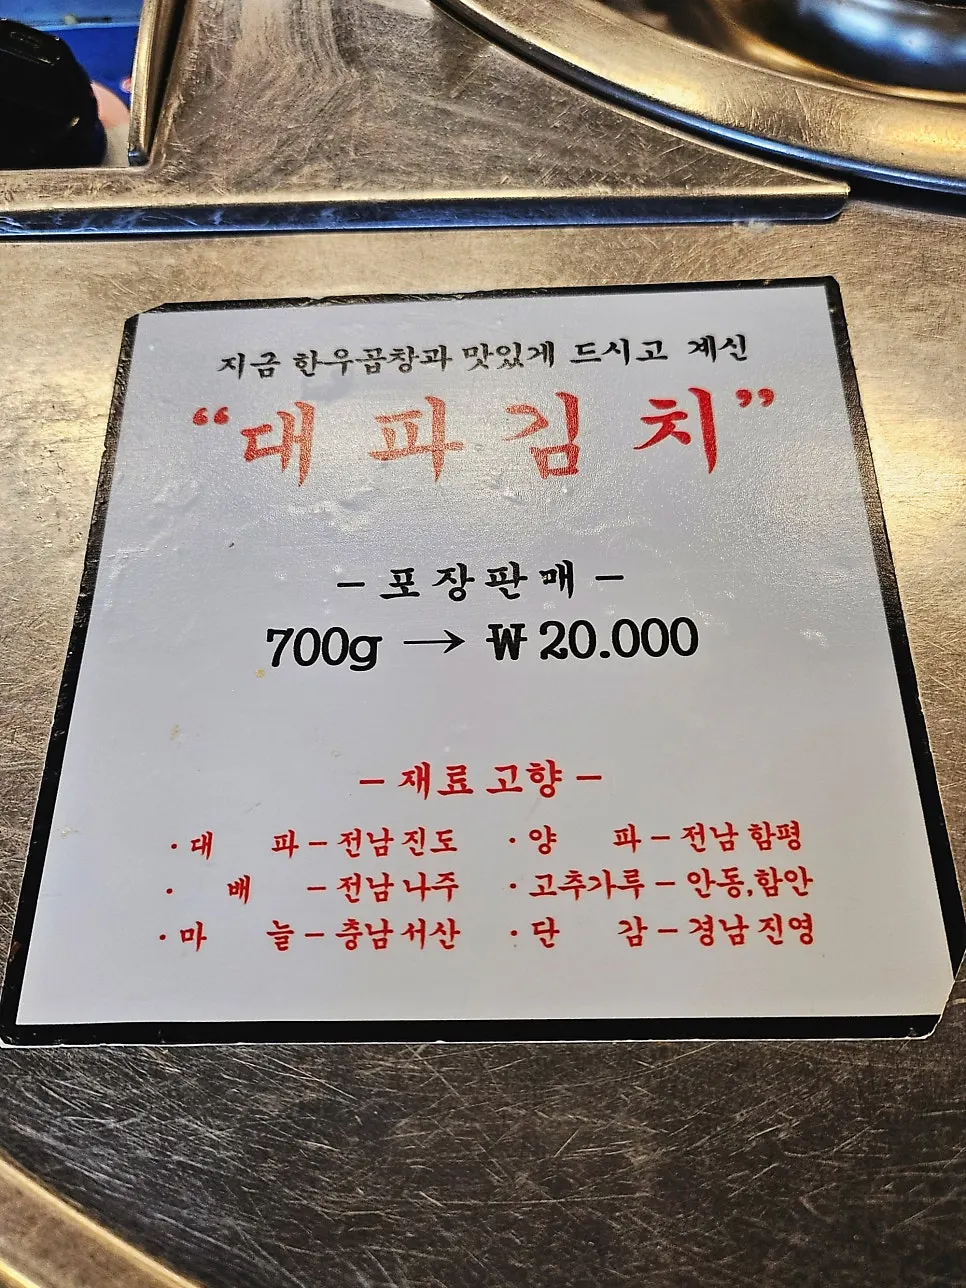 지금 한우곱창과 맛있게 드시고 계신
“대 파 김 치”
– 포장판매 –
700g → ₩ 20.000
– 재료 고향 –
· 대 파 – 전남 진도 · 양 파 – 전남 함평
· 배 – 전남 나주 · 고추가루 – 안동,함안
· 마 늘 – 충남 서산 · 단 감 – 경남 진영